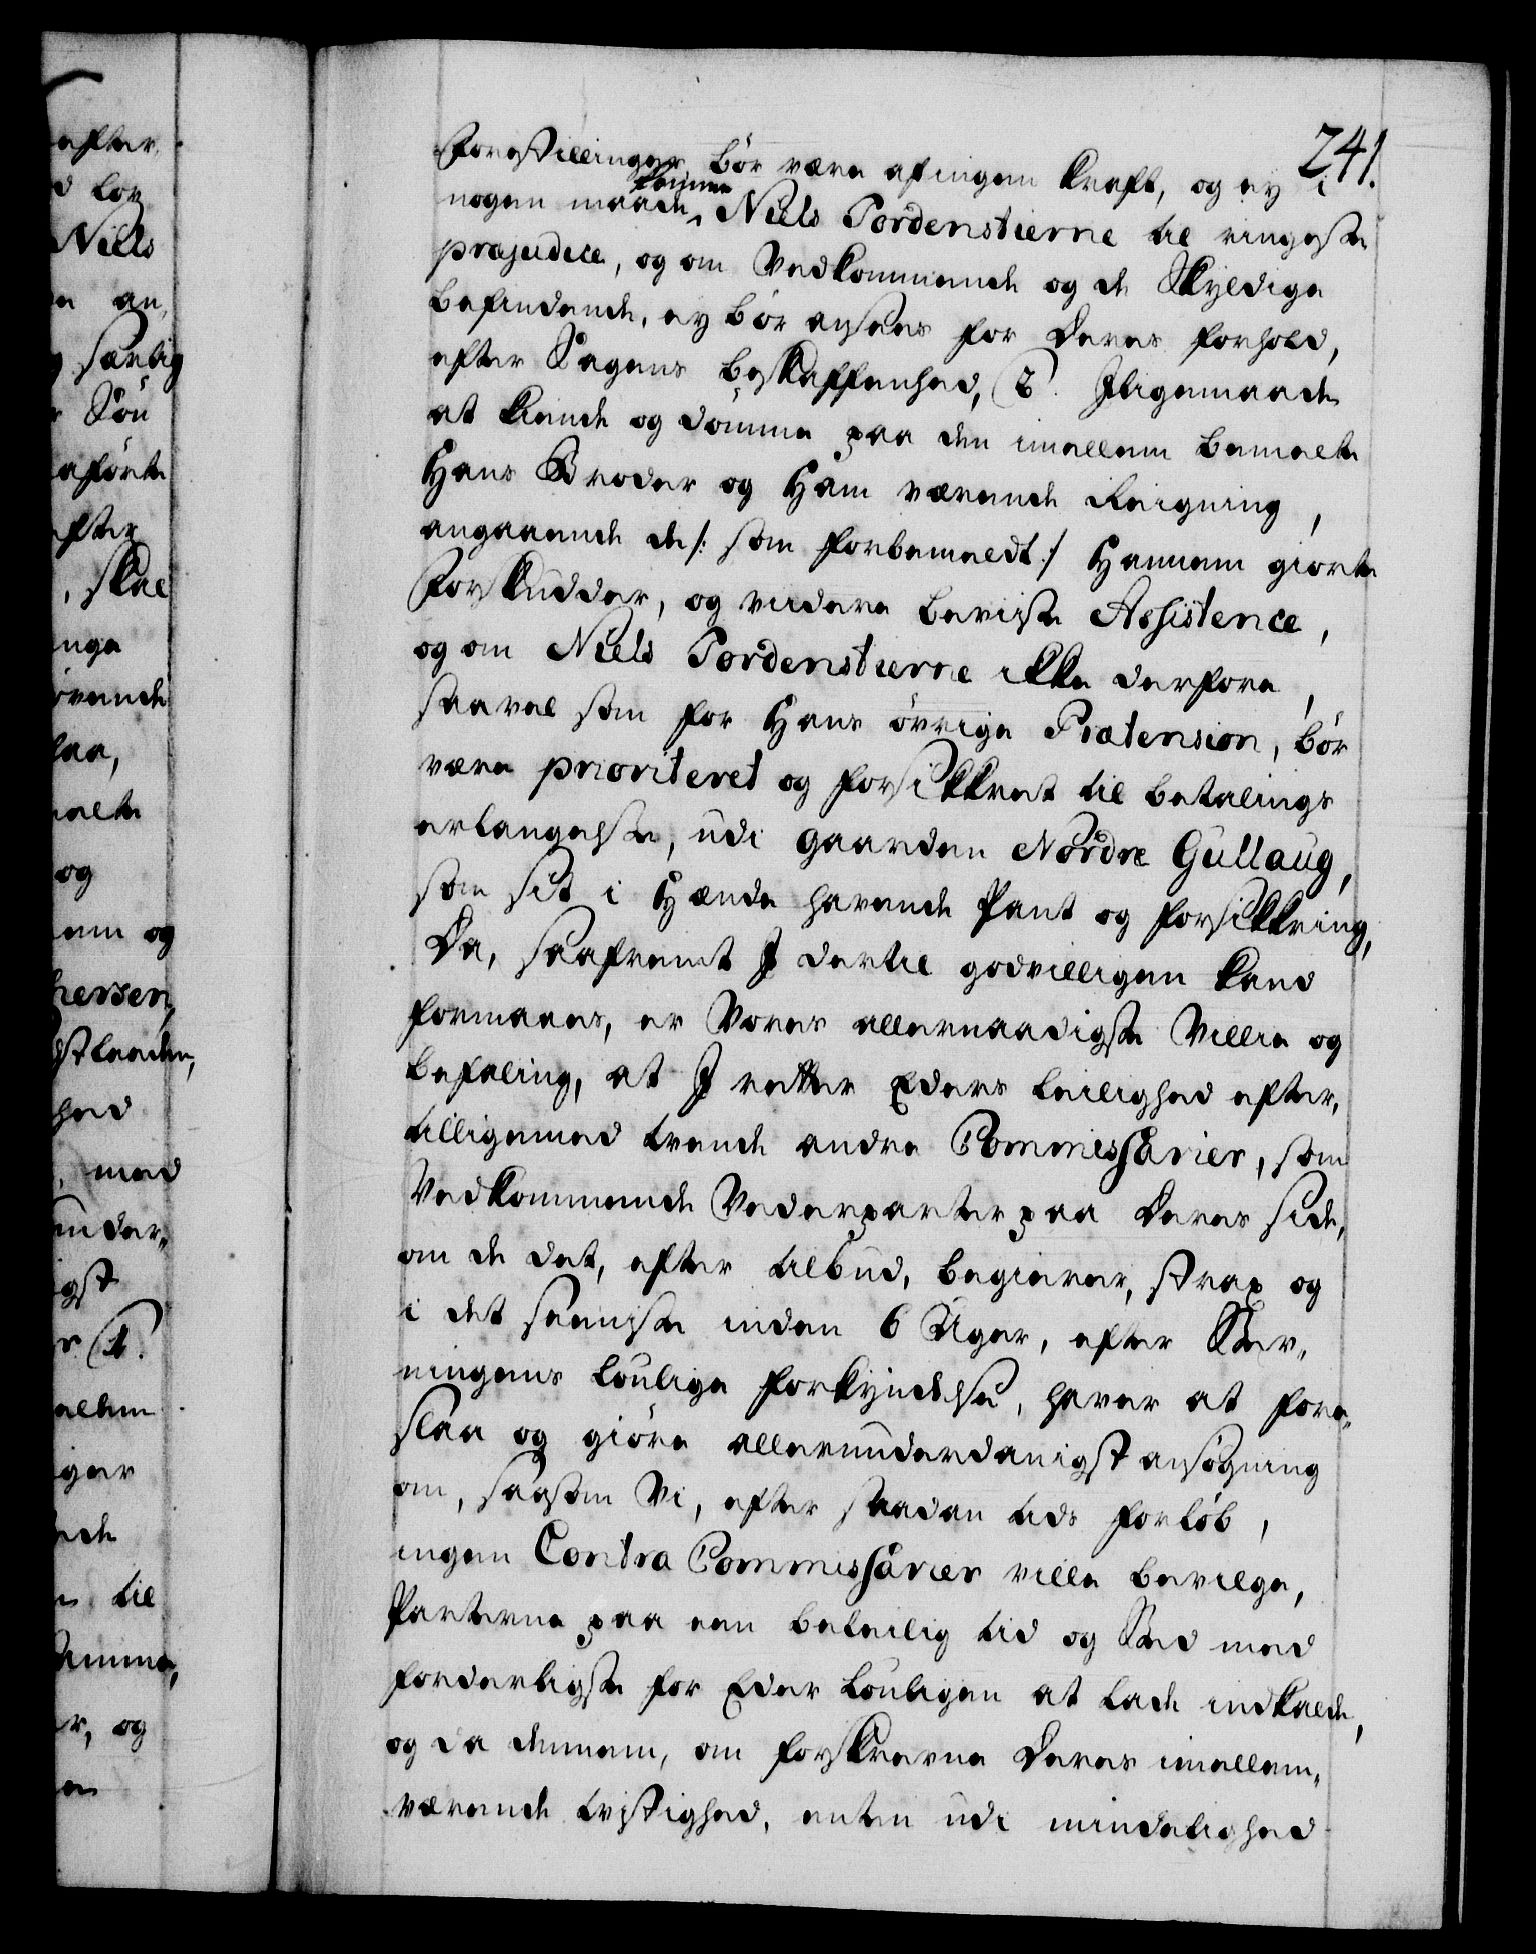 241.
Forestillinger bør være af ingen kraft, og ey i
nogen maade kunne Niels Tordenstierne til ringeste
præjudice, og om Vedkommende og de Skyldige
befindende, ey bør ansees for deres forhold,
efter Sagens beskaffenhed, (2. Jligemaade
at kiende og dømme paa den imellem bemelte
Hans Broder og Ham værende Reigning,
angaaende de /: som forbemeldt :/ Hannem giorte
Forskudder, og viidere beviste Assistence,
og om Niels Tordenstierne ikke derfore,
saavel som for Hans øvrige Prætension, bør
være prioriteret og forsikkret til betalings
erlangelse, udi gaarden Nordre Gullaug,
som sit i Hænde havende Pant og forsikkring,
Da, saafremt J dertil godvilligen kand
formaaes, er Vores allernaadigste Villie og
befaling, at J retter Eders leilighed efter,
tilligemed tvende andre Commissarier, som
Vedkommende Vederparter paa deres side,
om de det, efter tilbud, begierer, strax og
i det seeniste inden 6 Uger, efter Stev-
ningens lovlige forkyndelse, haver at fore-
slaa og giøre allerunderdanigst ansøgning
om, saasom Vi, efter saadan tids forløb,
ingen Contra Commissarier ville bevilge,
Parterne paa een beleilig tid og Sted med
forderligste for Eder lovligen at lade indkalde,
og da dennem, om forskrevne deres imellem-
værende tvistighed, enten udi mindelighed
efter
lov
Niels
an,
særlig
Søn
aførte
efter
, skal
og
hersen
med
under-
(1.
til
, og